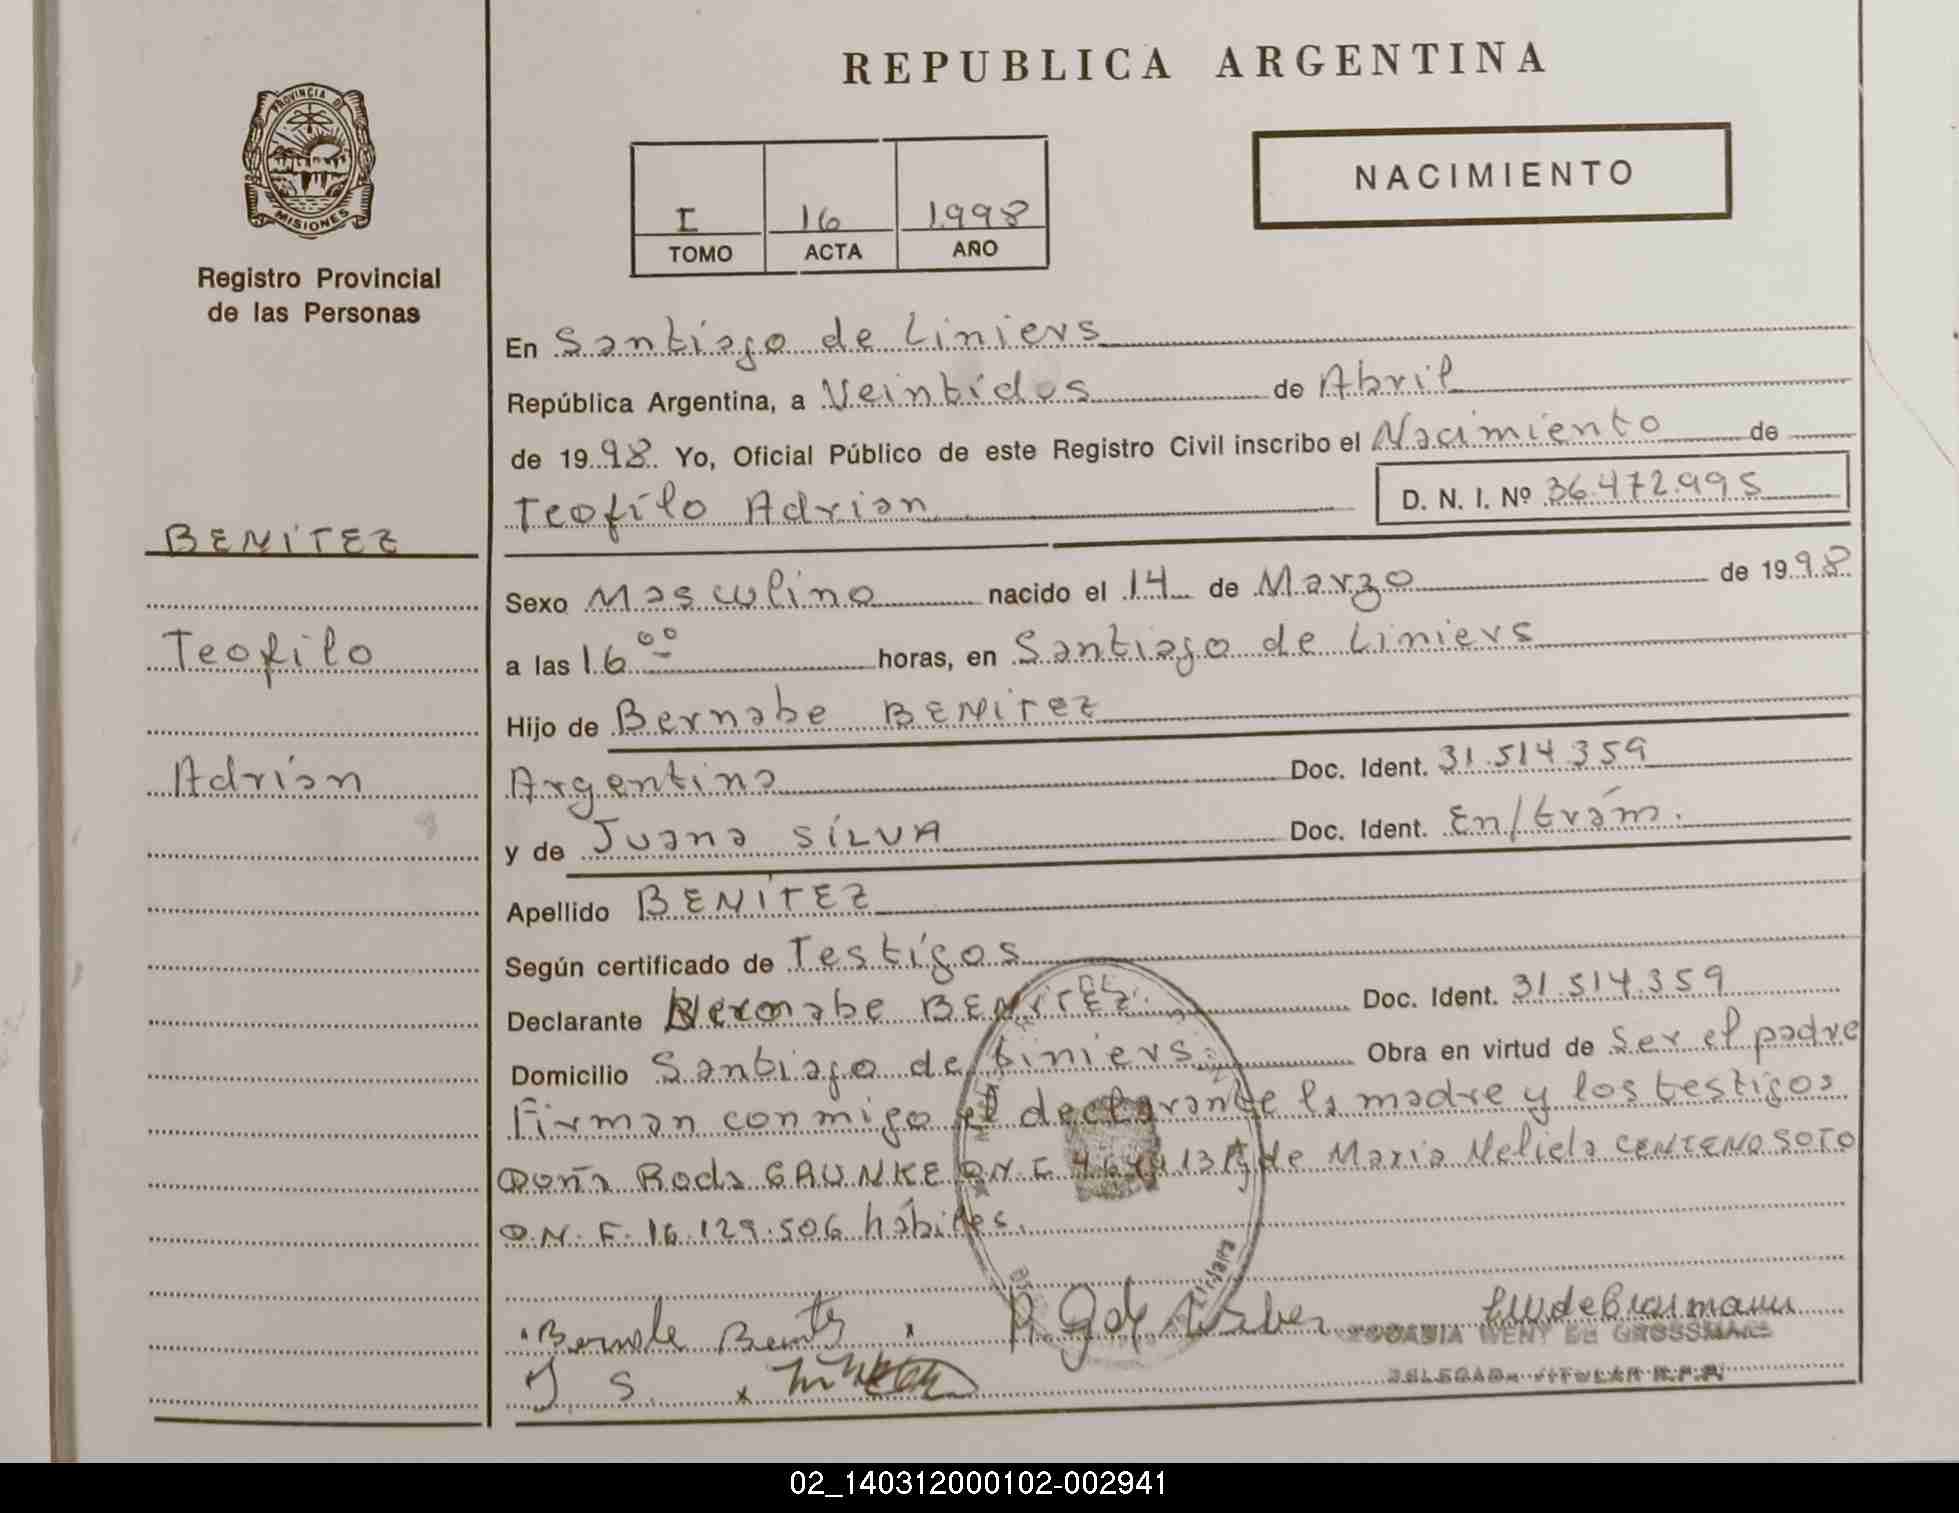 REPUBLICA ARGENTINA
PROVINCIA DE
MISIONES
Registro Provincial
de las Personas
NACIMIENTO
I 16 1998
TOMO ACTA AÑO
En Santiago de Liniers
República Argentina, a Veintidos de Abril
de 1998 Yo, Oficial Público de este Registro Civil inscribo el Nacimiento de
Teofilo Adrian D. N. I. Nº 36.472.995
BENITEZ
Teofilo
Adrian
Sexo Masculino nacido el 14 de Marzo de 1998
a las 16 00 horas, en Santiago de Liniers
Hijo de Bernabe BENITEZ
Argentina Doc. Ident. 31.514.359
y de Juana SILVA Doc. Ident. En/trám.
Apellido BENITEZ
Según certificado de Testigos
Declarante Bernabe BENITEZ. Doc. Ident. 31.514.359
Domicilio Santiago de Liniers. Obra en virtud de Ser el padre
Firman conmigo el declarante la madre y los testigos
Doña Roda GAUNKE D.N.I. de Maria CENTENO SOTO
D.N.F. 16.129.506 hábiles.
Bernabe Benitez
J S.
WENY DE GROSSMANN
DELEGADA TITULAR R.P.P.
02_140312000102-002941